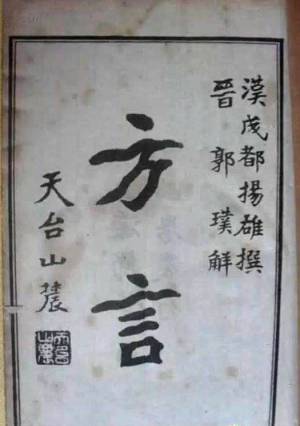 漢成都揚雄撰
晉 郭璞解
方言
天台山農